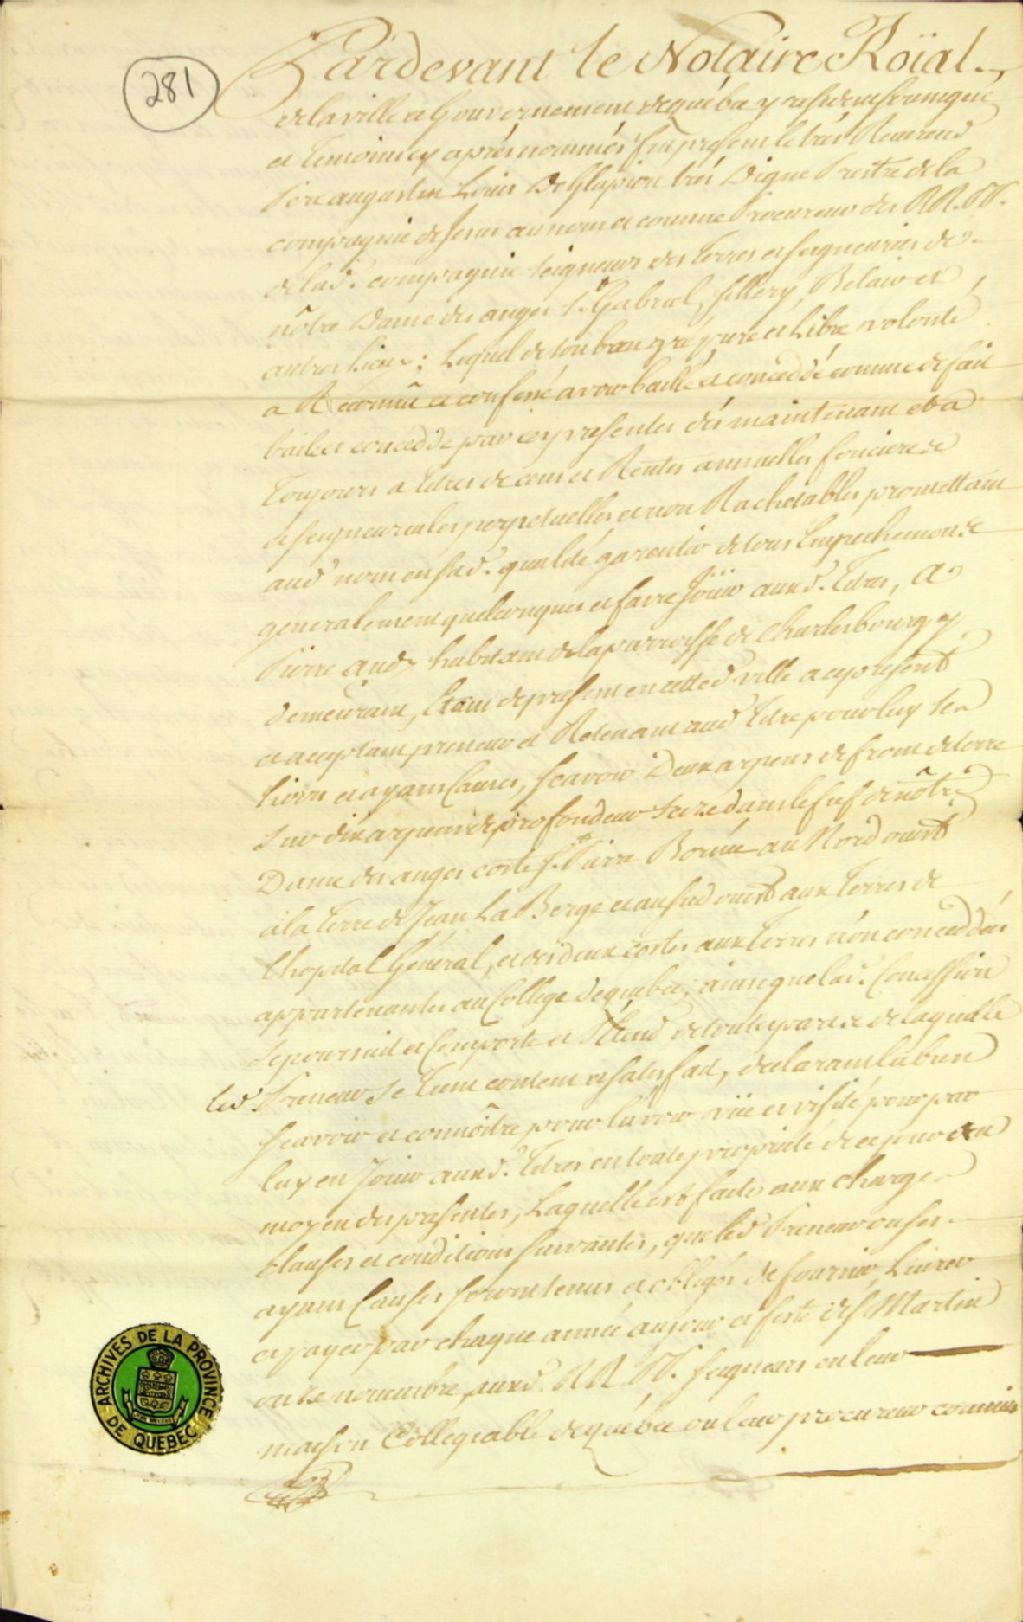 281
Pardevant le Notaire Roïal
de la ville et Gouvernement de quebec y residen soussigné
et temoins cy aprés nommés fut present le trés Reverend
Pere augustin Louis De Glapion trés Digne Prestre de la
compagnie de Jesus au nom et comme Procureur des RR. PP.
de lad. compagnie seigneurs des terres et seigneuries de
nôtre Dame des anges St. Gabriel, sillery, Belair et
autres Lieux; Lequel de son bon gré pure et Libre volonté
a Reconnû et confessé avoir baillé et conceddé comme de fait
baille et concedde par ces presentes dés maintenant et a
toujours a titres de cens et Rentes annuelles foncieres
et seigneuriales perpetuelles et non Rachetables promettant
aud nom en sad. qualité garentir de tous Empeschemens
generalement quelconques et faire Joüir auxd. titres, A
Pierre habitant de la parroisse de Charlesbourg y
demeurant, Etant de present en cetted ville a ce present
et acceptant preneur et Retenant aud titre pour luy ses
hoirs et ayans Causes, scavoir Deux arpens de front de terre
sur dix arpens de profondeur size dans le fief de nôtre
Dame des anges coste St Pierre Bornée au Nord ouest
à la terre de Jean La Berge et au sud ouest aux terres de
lhopital Général, et des deux costés aux terres non conceddées
appartenantes au College de quebec; ainsi que lad. Concession
se poursuit et Comporte et s'Etend de toutes parts de laquelle
led Preneur se tient content et satisfait, declarant la bien
scavoir et connoître pour lavoir vüe et visité pour par
luy en Jouir auxd. titres en toute proprieté de ce jour au
moyen des presentes, Laquelle est faite aux charges
Clauses et conditions suivantes, que led Preneur ou ses
ayans Causes seront tenus et obligés de fournir, Livrer
et payer par chaque année au jour et feste de St Martin
onze novembre, auxd. RR PP. seigneurs en leur
maison Collegiable de quebec ou leur procureur commis
ARCHIVES DE LA PROVINCE DE QUEBEC